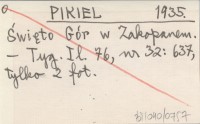 PIKIEL 1935.
Święto Gór w Zakopanem.
– Tyg. Il. 76, nr 32: 637,
tylko 2 fot.